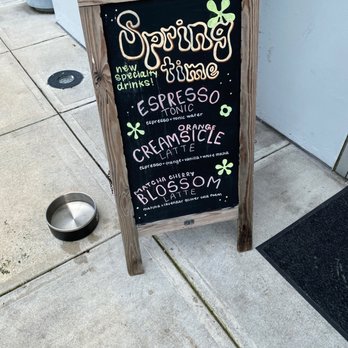 Spring
time
new
specialty
drinks!
ESPRESSO
TONIC
espresso + tonic water
ORANGE
CREAMSICLE
LATTE
espresso + orange + vanilla + white mocha
MATCHA CHERRY
BLOSSOM
LATTE
matcha + lavender cold foam